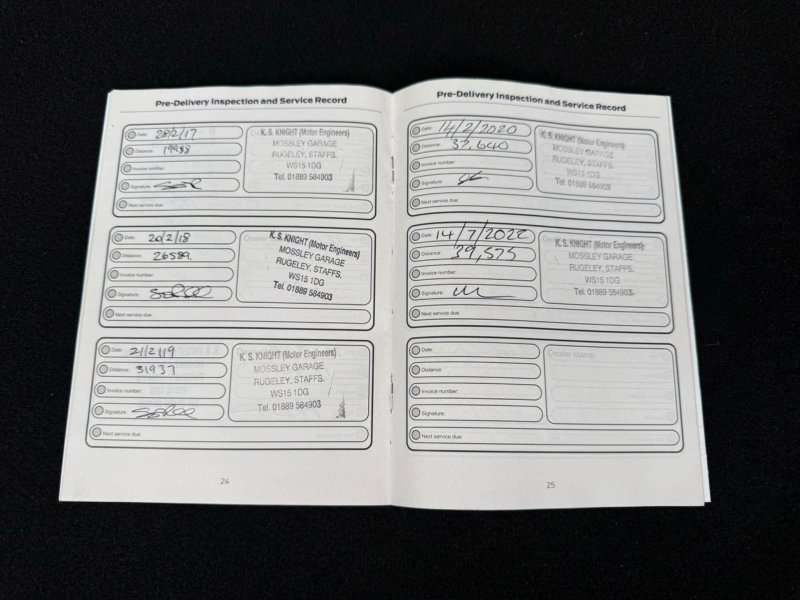 Pre-Delivery Inspection and Service Record
Date: 28/2/17
Distance: 19958
Invoice number:
Signature:
Next service due:
K. S. KNIGHT (Motor Engineers)
MOSSLEY GARAGE
RUGELEY, STAFFS,
WS15 1DG
Tel. 01889 584903
Date: 20/2/18
Distance: 26589.
Invoice number:
Signature:
Next service due:
K. S. KNIGHT (Motor Engineers)
MOSSLEY GARAGE
RUGELEY, STAFFS,
WS15 1DG
Tel. 01889 584903
Date: 21/2/19
Distance: 31937
Invoice number:
Signature:
Next service due:
K. S. KNIGHT (Motor Engineers)
MOSSLEY GARAGE
RUGELEY, STAFFS,
WS15 1DG
Tel. 01889 584903
24
Pre-Delivery Inspection and Service Record
Date: 14/2/2020
Distance: 37,640
Invoice number:
Signature:
Next service due:
K. S. KNIGHT (Motor Engineers)
MOSSLEY GARAGE
RUGELEY, STAFFS,
WS15 1DG
Tel. 01889 584903
Date: 14/7/2022
Distance: 39,575
Invoice number:
Signature:
Next service due:
K. S. KNIGHT (Motor Engineers)
MOSSLEY GARAGE
RUGELEY, STAFFS,
WS15 1DG
Tel. 01889 584903
Date:
Distance:
Invoice number:
Signature:
Next service due:
Dealer stamp
25